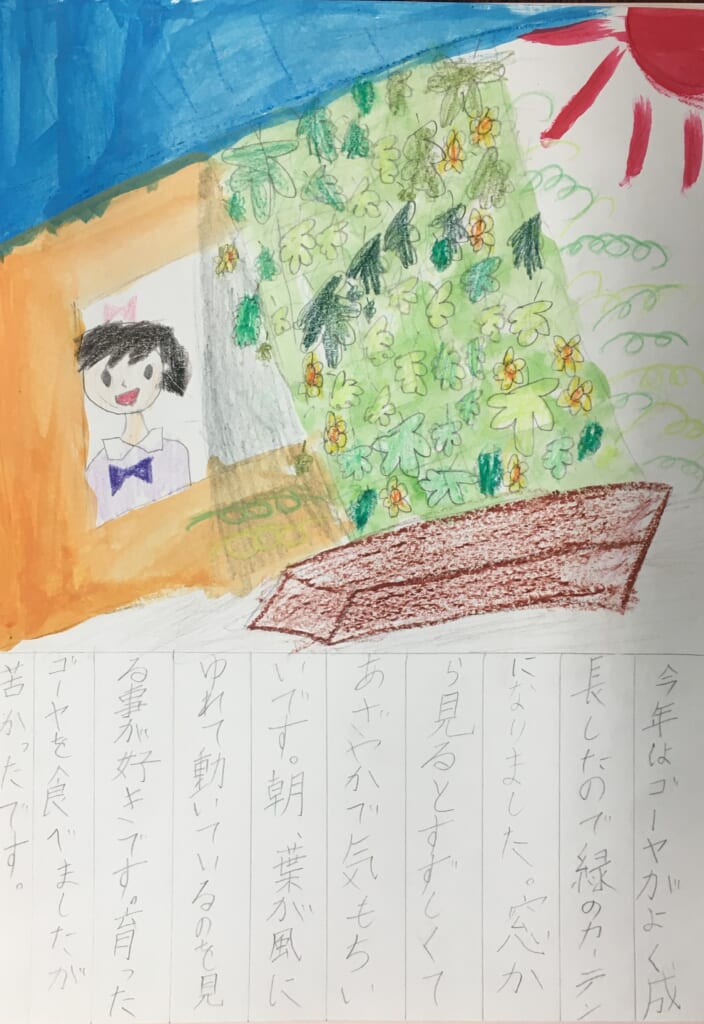 今年はゴーヤがよく成
長したので緑のカーテン
になりました。窓か
ら見るとすずしくて
あざやかで気もちい
いです。朝、葉が風に
ゆれて動いているのを見
る事が好きです。育った
ゴーヤを食べましたが
苦かったです。